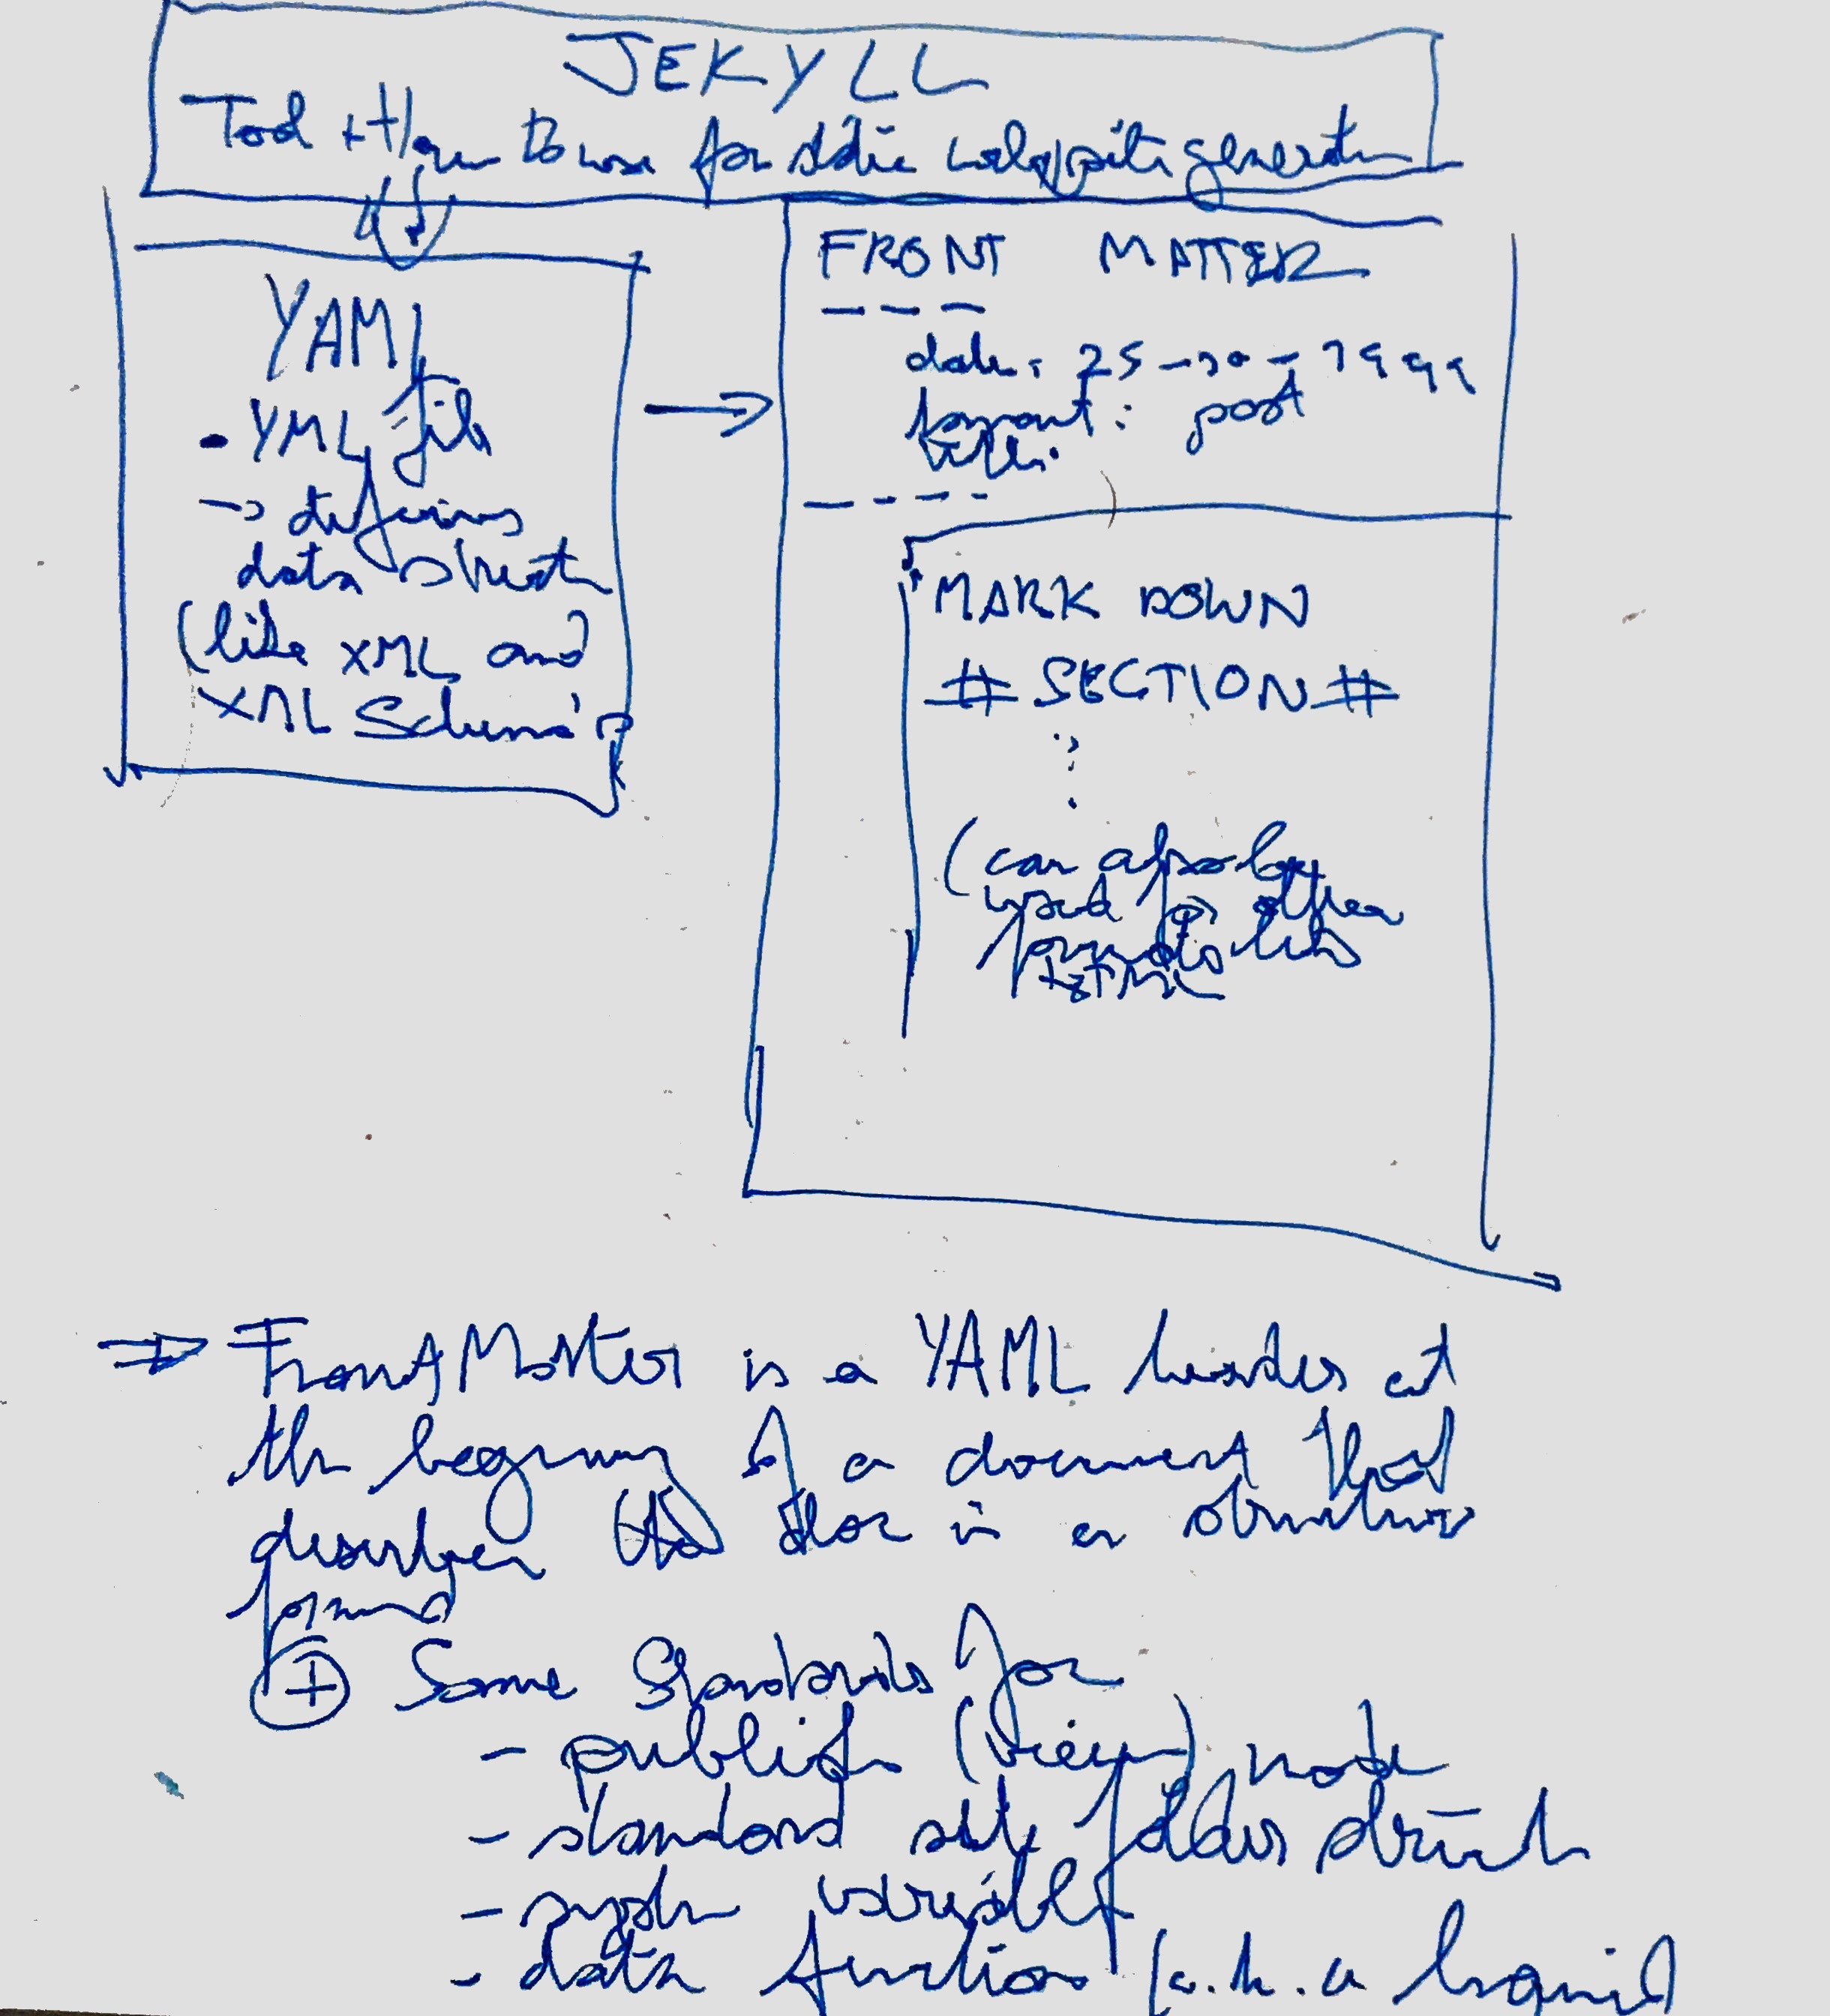 JEKYLL
Tool + How to use for static website generation
YAML
- YML file
-> defines
data struct
(like XML and
XML Schema)
FRONT MATTER
---
date: 25-10-1999
layout: post
title:
----
MARK DOWN
# SECTION #
:
(can also be
used for other
formats like
HTML
=> Front Matter is a YAML header at
the beginning of a document that
describes the doc in a structured
format
+ Some Standards for
- publish (view) mode
- standard site folder struct
- system variable
- data function (a.k.a liquid